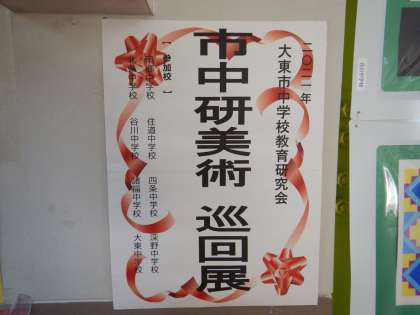 二〇二一年
大東市中学校教育研究会
市中研美術 巡回展
【 参加校 】
南郷中学校
住道中学校
四条中学校
深野中学校
北条中学校
谷川中学校
諸福中学校
大東中学校